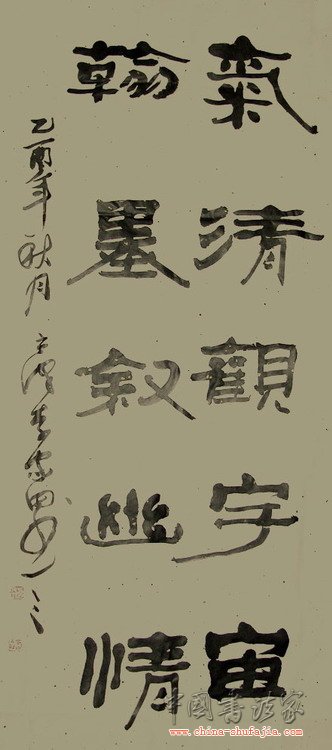 氣清觀宇宙
翰墨敘幽情
乙酉年秋月
中國書法家
www.china-shufajia.com